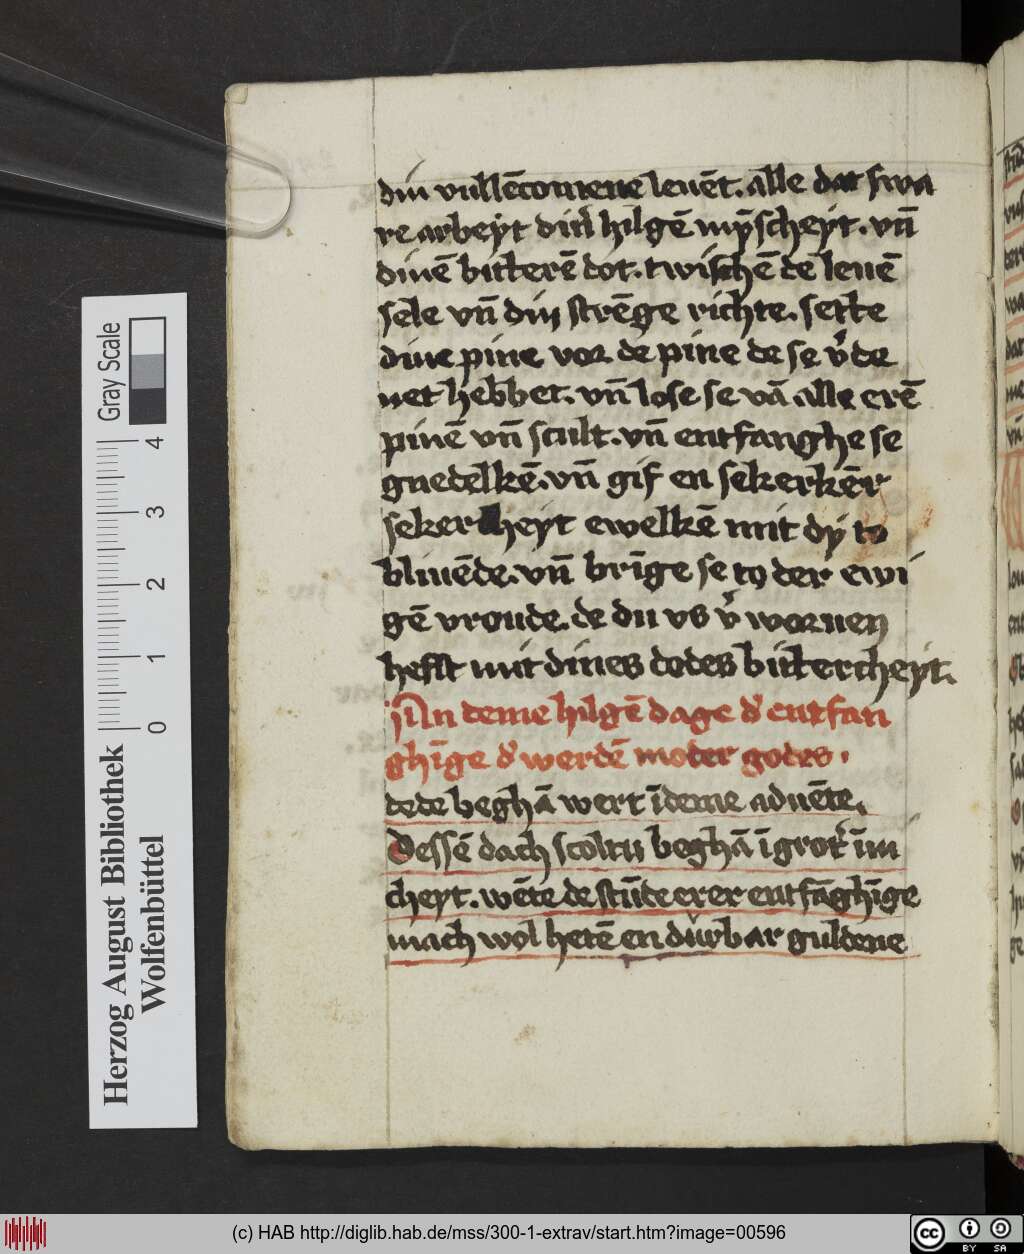 din vullēcomene leuēt. alle dat swa
re arbeyt diner hilgē mynscheyt. vn̄
dinē bitterē dot. twischē de leuē
sele vn̄ din strēge richte. sette
dine pine vor de pine de se v̄de
net hebbet. vn̄ lose se vā alle erē
pinē vn̄ scult. vn̄ entfanghe se
gnedelkē. vn̄ gif en sekerkēr
seker heyt ewelkē mit dy to
bliuēde. vn̄ brīge se to der ewi
gē vroude. de du vs v̄ woruen
hefst mit dines dodes bittercheyt.
In deme hilgē dage d' entfan
ghīge d' werdē moder godes.
dede beghā wert ī deme aduēte.
Dessē dach scoltu beghā ī grot' īni
cheyt. wēte de stūde erer entfāghīge
mach wol hetē en dürbar guldene
Herzog August Bibliothek
Wolfenbüttel
0 1 2 3 4
Gray Scale
(c) HAB http://diglib.hab.de/mss/300-1-extrav/start.htm?image=00596
cc BY SA